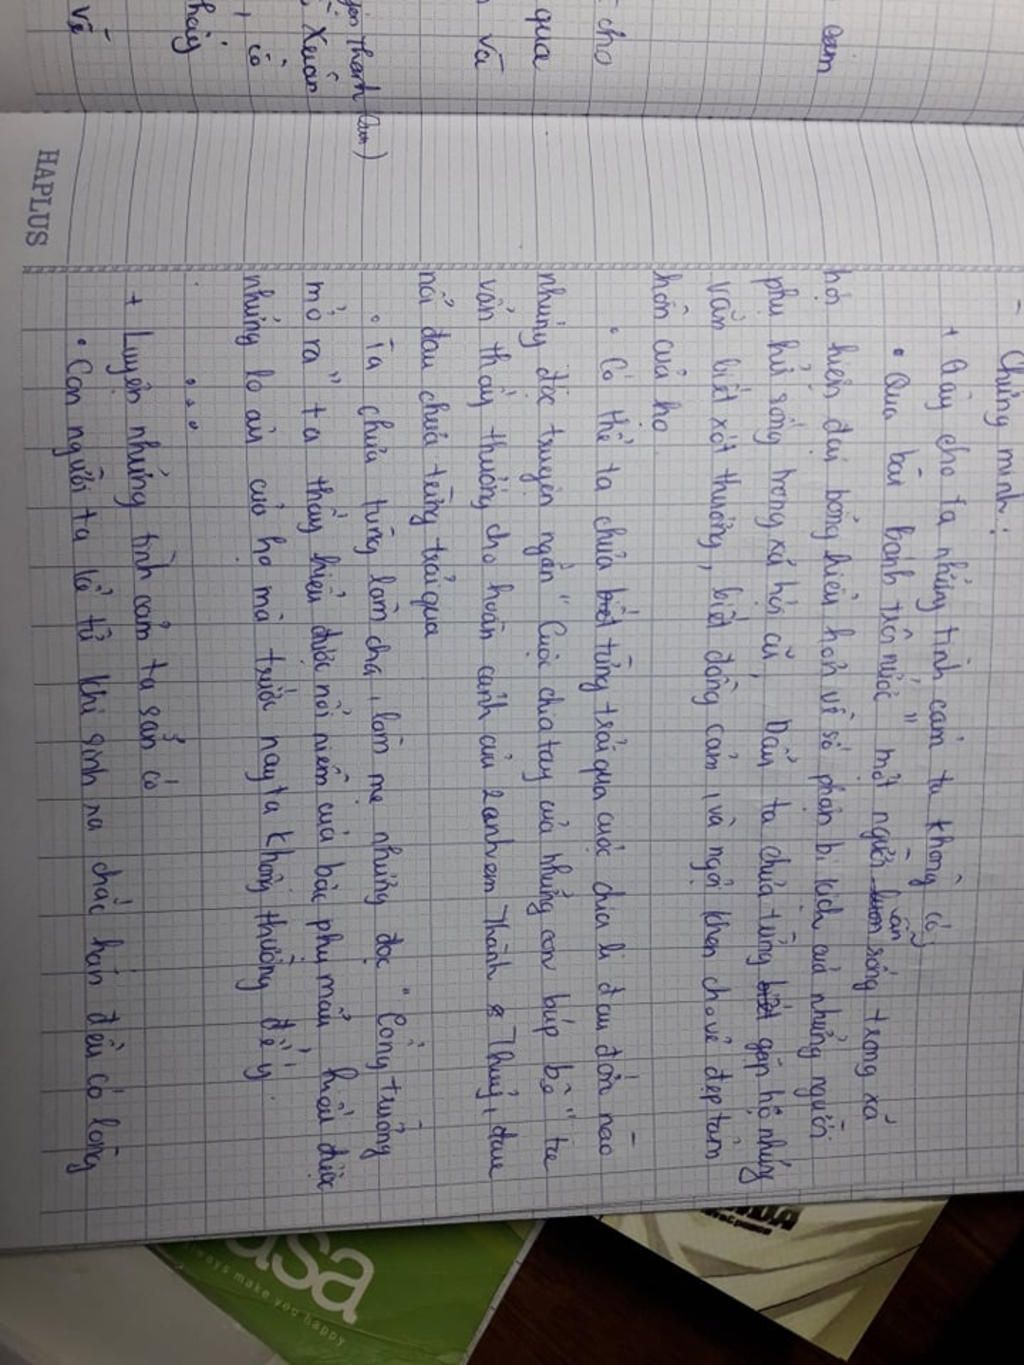 - Chứng minh:
+ Gây cho ta những tình cảm ta không có
• Qua bài "bánh trôi nước" một người vẫn sống trong xã
hội hiện đại bỗng hiểu hơn về số phận bi kịch của những người
phụ nữ sống trong xã hội cũ, Dẫu ta chưa từng gặp họ nhưng
vẫn biết xót thương, biết đồng cảm, và ngợi khen cho vẻ đẹp tâm
hồn của họ
• Có thể ta chưa từng trải qua cuộc chia li đau đớn nào
nhưng đọc truyện ngắn "Cuộc chia tay của những con búp bê" ta
vẫn thấy thương cho hoàn cảnh của 2 anh em Thành & Thuỷ, đau
nỗi đau chưa từng trải qua
• Ta chưa từng làm cha, làm mẹ nhưng đọc "Cổng trường
mở ra" ta thấy hiểu được nỗi niềm của bậc phụ mẫu, hiểu được
những lo âu của họ mà trước nay ta không thường để ý.
...
+ Luyện những tình cảm ta sẵn có
• Con người ta kể từ khi sinh ra chắc hẳn đều có lòng
cảm
cho
qua
và
Thanh Quan)
Xuân
có
về
HAPLUS
asa
always make you happy